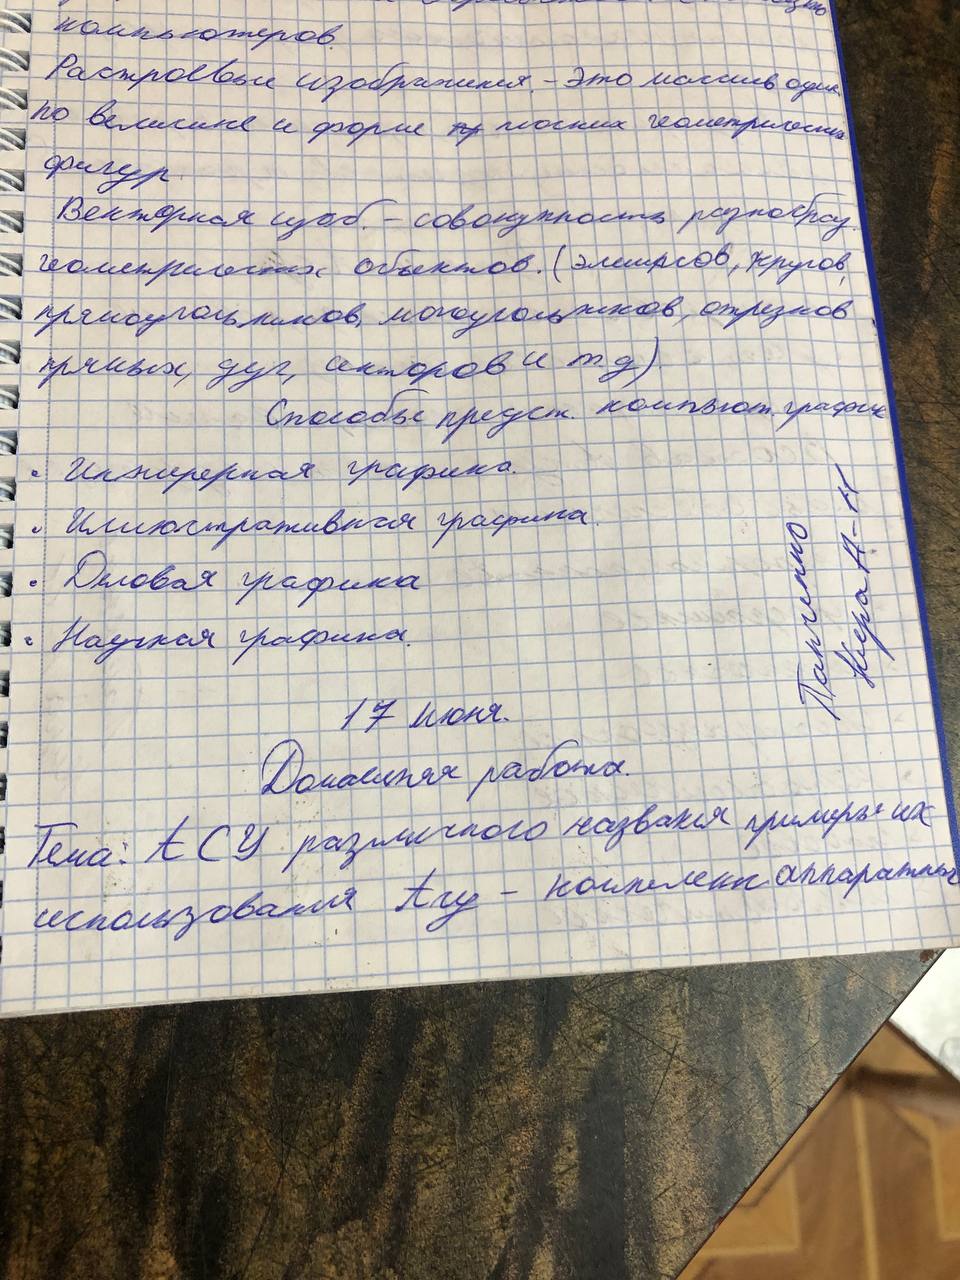 компьютеров.
Растровые изображения - это массив один.
по величине и форме плоских геометрических
фигур.
Векторная изоб. - совокупность разнообраз.
геометрических объектов. (эллипсов, кругов,
прямоугольников, многоугольников, отрезков
прямых, дуг, секторов и т.д)
Способы предст. компьют. график
• Инженерная графика.
• Иллюстративная графика.
• Деловая графика
• Научная графика.
Панченко
Кира А-11
17 июня.
Домашняя работа.
Тема: АСУ различного назвакия примеры их
использования Асу - комплекс аппаратных